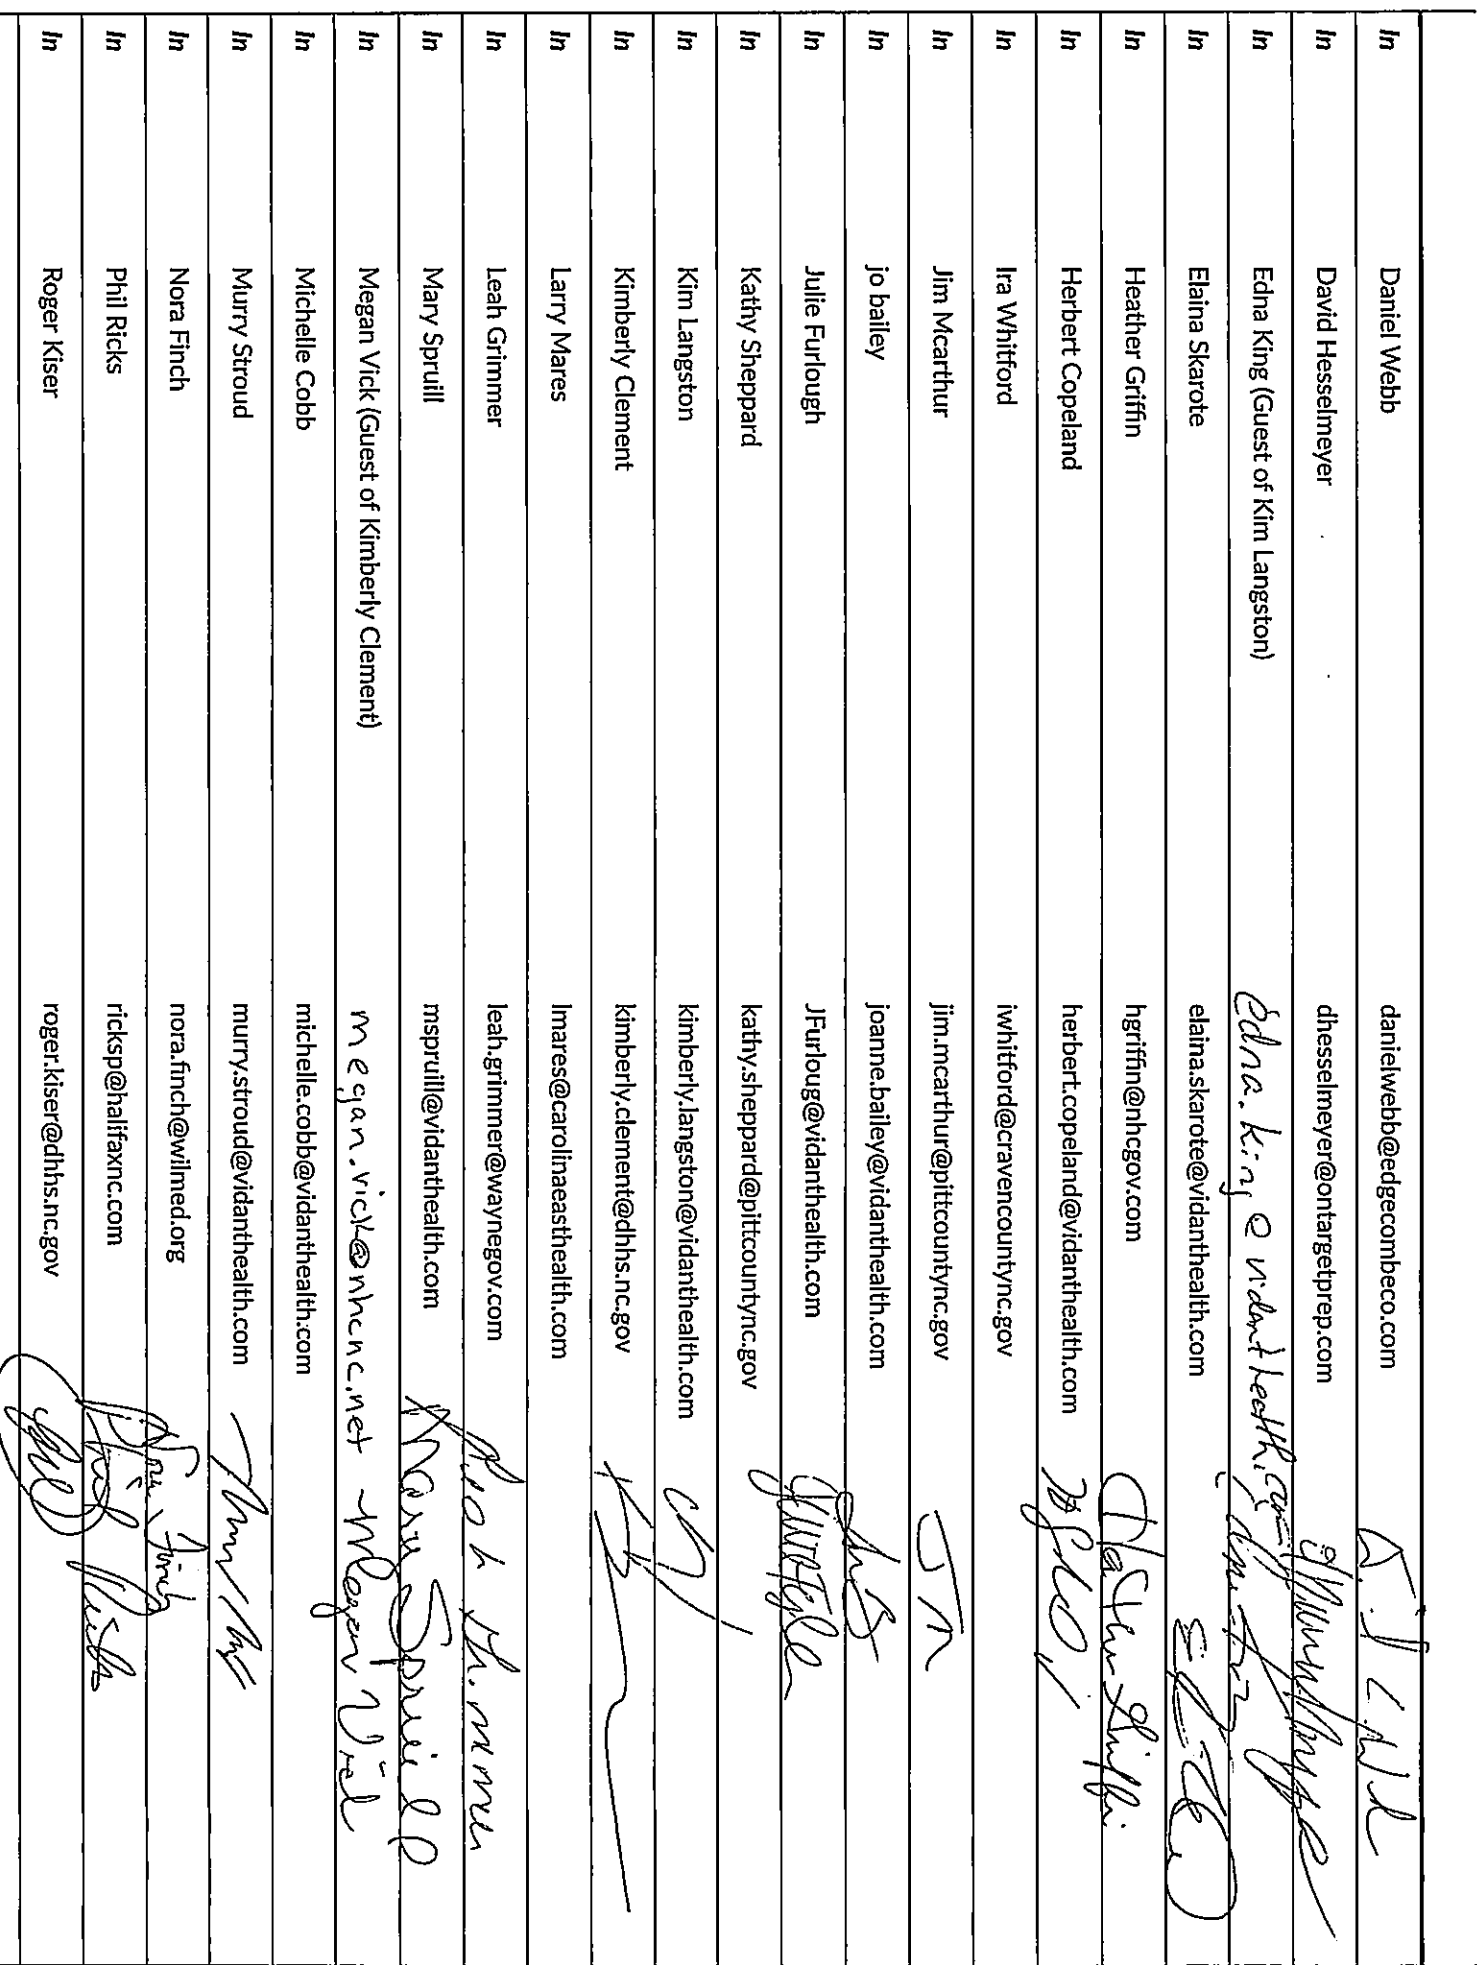 In Daniel Webb danielwebb@edgecombeco.com
In David Hesselmeyer dhesselmeyer@ontargetprep.com
In Edna King (Guest of Kim Langston) edna.king@vidanthealth.com
In Elaina Skarote elaina.skarote@vidanthealth.com
In Heather Griffin hgriffin@nhcgov.com Heather Griffin
In Herbert Copeland herbert.copeland@vidanthealth.com
In Ira Whitford iwhitford@cravencountync.gov
In Jim Mcarthur jim.mcarthur@pittcountync.gov
In jo bailey joanne.bailey@vidanthealth.com
In Julie Furlough JFurloug@vidanthealth.com
In Kathy Sheppard kathy.sheppard@pittcountync.gov
In Kim Langston kimberly.langston@vidanthealth.com
In Kimberly Clement kimberly.clement@dhhs.nc.gov
In Larry Mares lmares@carolinaeasthealth.com
In Leah Grimmer leah.grimmer@waynegov.com
In Mary Spruill mspruill@vidanthealth.com Mary Spruill
In Megan Vick (Guest of Kimberly Clement) megan.vick@nhcnc.net Megan Vick
In Michelle Cobb michelle.cobb@vidanthealth.com
In Murry Stroud murry.stroud@vidanthealth.com
In Nora Finch nora.finch@wilmed.org Nora Finch
In Phil Ricks ricksp@halifaxnc.com Phil Ricks
In Roger Kiser roger.kiser@dhhs.nc.gov